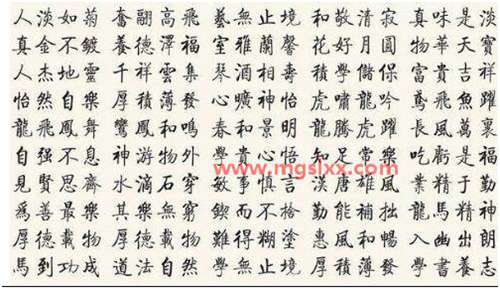 人淡如菊 奮翮高飛 藝無止境 和敬清寂 真味是淡
真金不鍍 養德澤福 室雅蘭馨 花好月圓 物華天寶
人杰地靈 千祥雲集 琴酒 壽 積學儲 富貴吉祥
怡然自樂 厚積薄發 心曠神怡 虎嘯龍吟 鳶飛魚躍
龍飛鳳舞 鸞鳳和鳴 春和景明 龍騰虎躍 長風萬裏
自强不息 神游物外 學貴心悟 知足常樂 吃虧是福
www.mgslxx.com
見賢思齊 水滴石穿 敏事慎言 漢唐雄風 業精于勤
爲善最樂 其樂無窮 鍥而不捨 勤能補拙 龍馬精神
厚德載物 厚德載物 難得糊塗 惠風和暢 入幽出朗
馬到功成 道法自然 學無止境 厚積薄發 學書養志